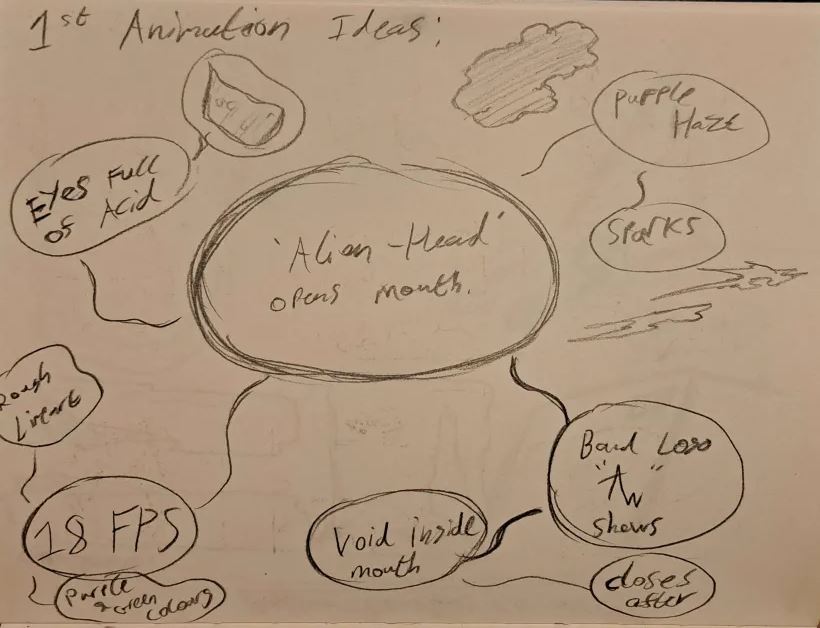 1st Animation Ideas:
Purple
Haze
Eyes Full
of Acid
Sparks
'Alien-Head'
opens mouth.
Rough
Lineart
Band Logo
shows
18 FPS
Void inside
mouth
Purple
& Green
Colours
closes
after